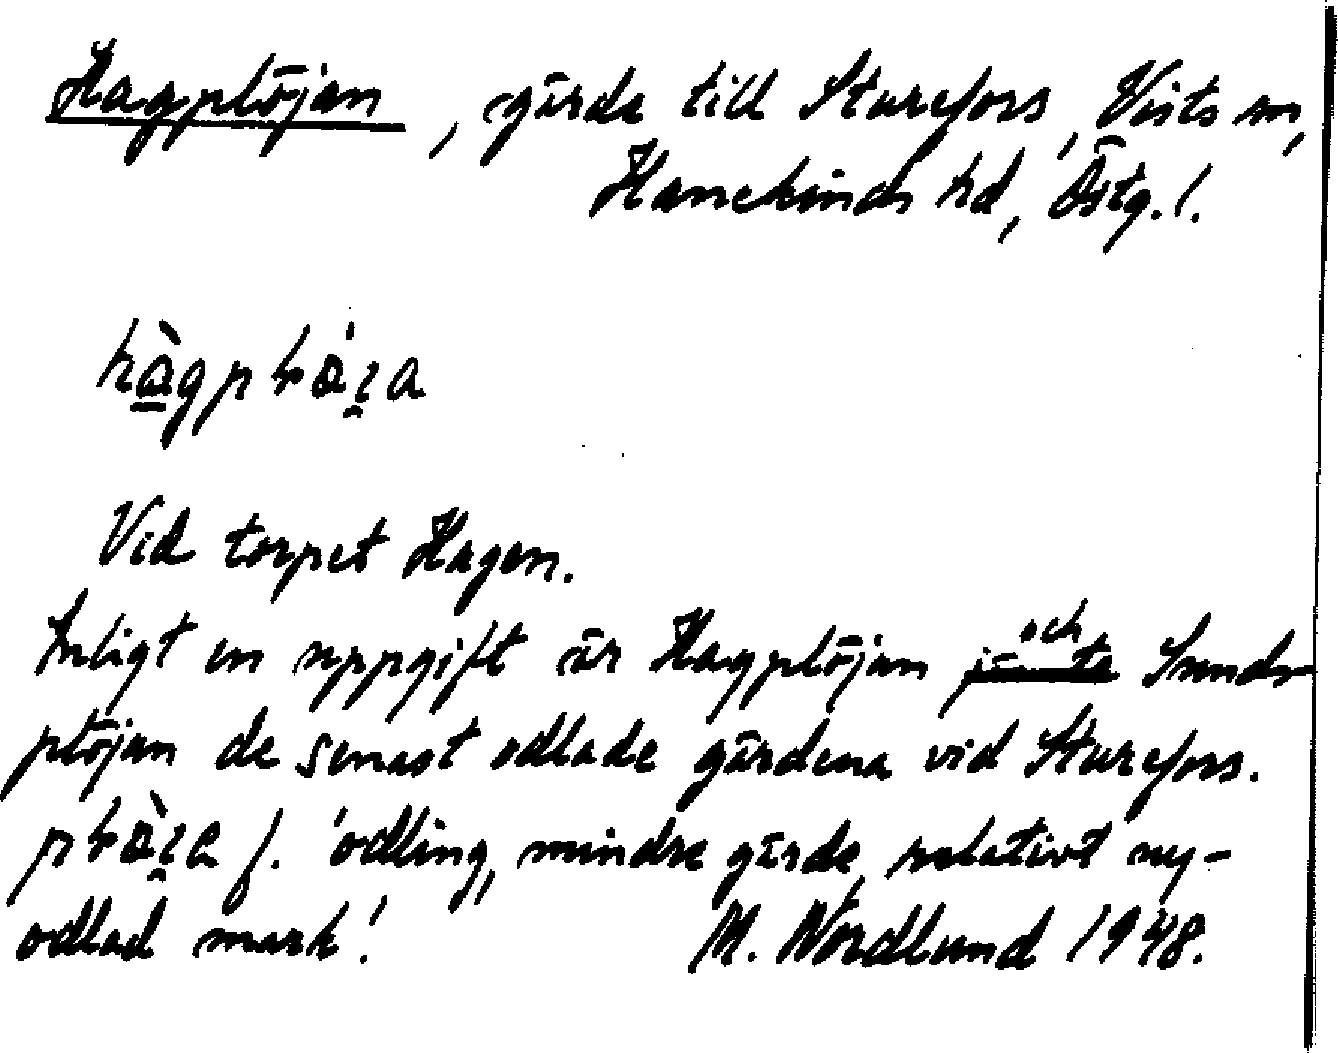 Hagplöjan, gärde till Sturefors, Vists sn,
Hanekinds hd, Östg. l.
Vid torpet Hagen.
Enligt en uppgift är Hagplöjan och Sunds-
plöjan de senast odlade gärdena vid Sturefors.
f. 'odling, mindre gärde, relativt ny-
odlad mark'. M. Nordlund 1948.